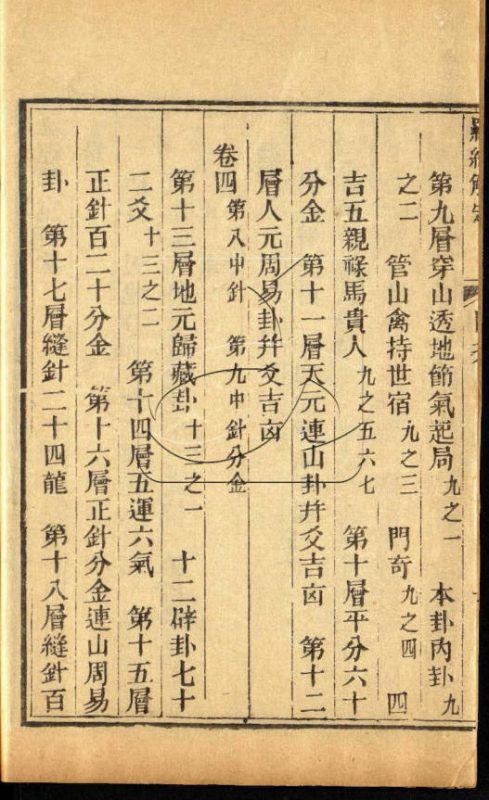 羅經解定
目次
第九層穿山透地節氣起局 九之一 本卦內卦 九
之二 管山禽持世宿 九之三 門奇 九之四 四
吉五親祿馬貴人 九之五六七 第十層平分六十
分金 第十一層天元連山卦幷爻吉凶 第十二
層人元周易卦幷爻吉凶
卷四 第八中針 第九中針分金
第十三層地元歸藏卦 十三之一 十二辟卦七十
二爻 十三之二 第十四層五運六氣 第十五層
正針百二十分金 第十六層正針分金連山周易
卦 第十七層縫針二十四龍 第十八層縫針百